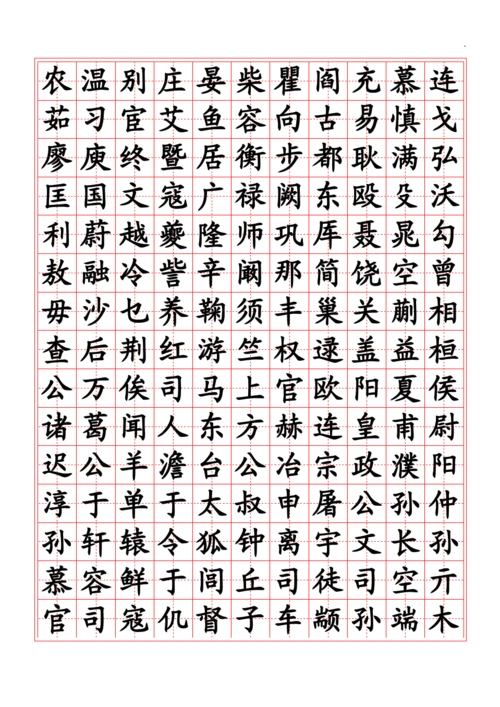 农温别庄晏柴瞿阎充慕连
茹习宦艾鱼容向古易慎戈
廖庾终暨居衡步都耿满弘
匡国文寇广禄阙东殴殳沃
利蔚越夔隆师巩厍聂晁勾
敖融冷訾辛阚那简饶空曾
毋沙乜养鞠须丰巢关蒯相
查后荆红游竺权逯盖益桓
公万俟司马上官欧阳夏侯
诸葛闻人东方赫连皇甫尉
迟公羊澹台公冶宗政濮阳
淳于单于太叔申屠公孙仲
孙轩辕令狐钟离宇文长孙
慕容鲜于闾丘司徒司空亓
官司寇仉督子车颛孙端木